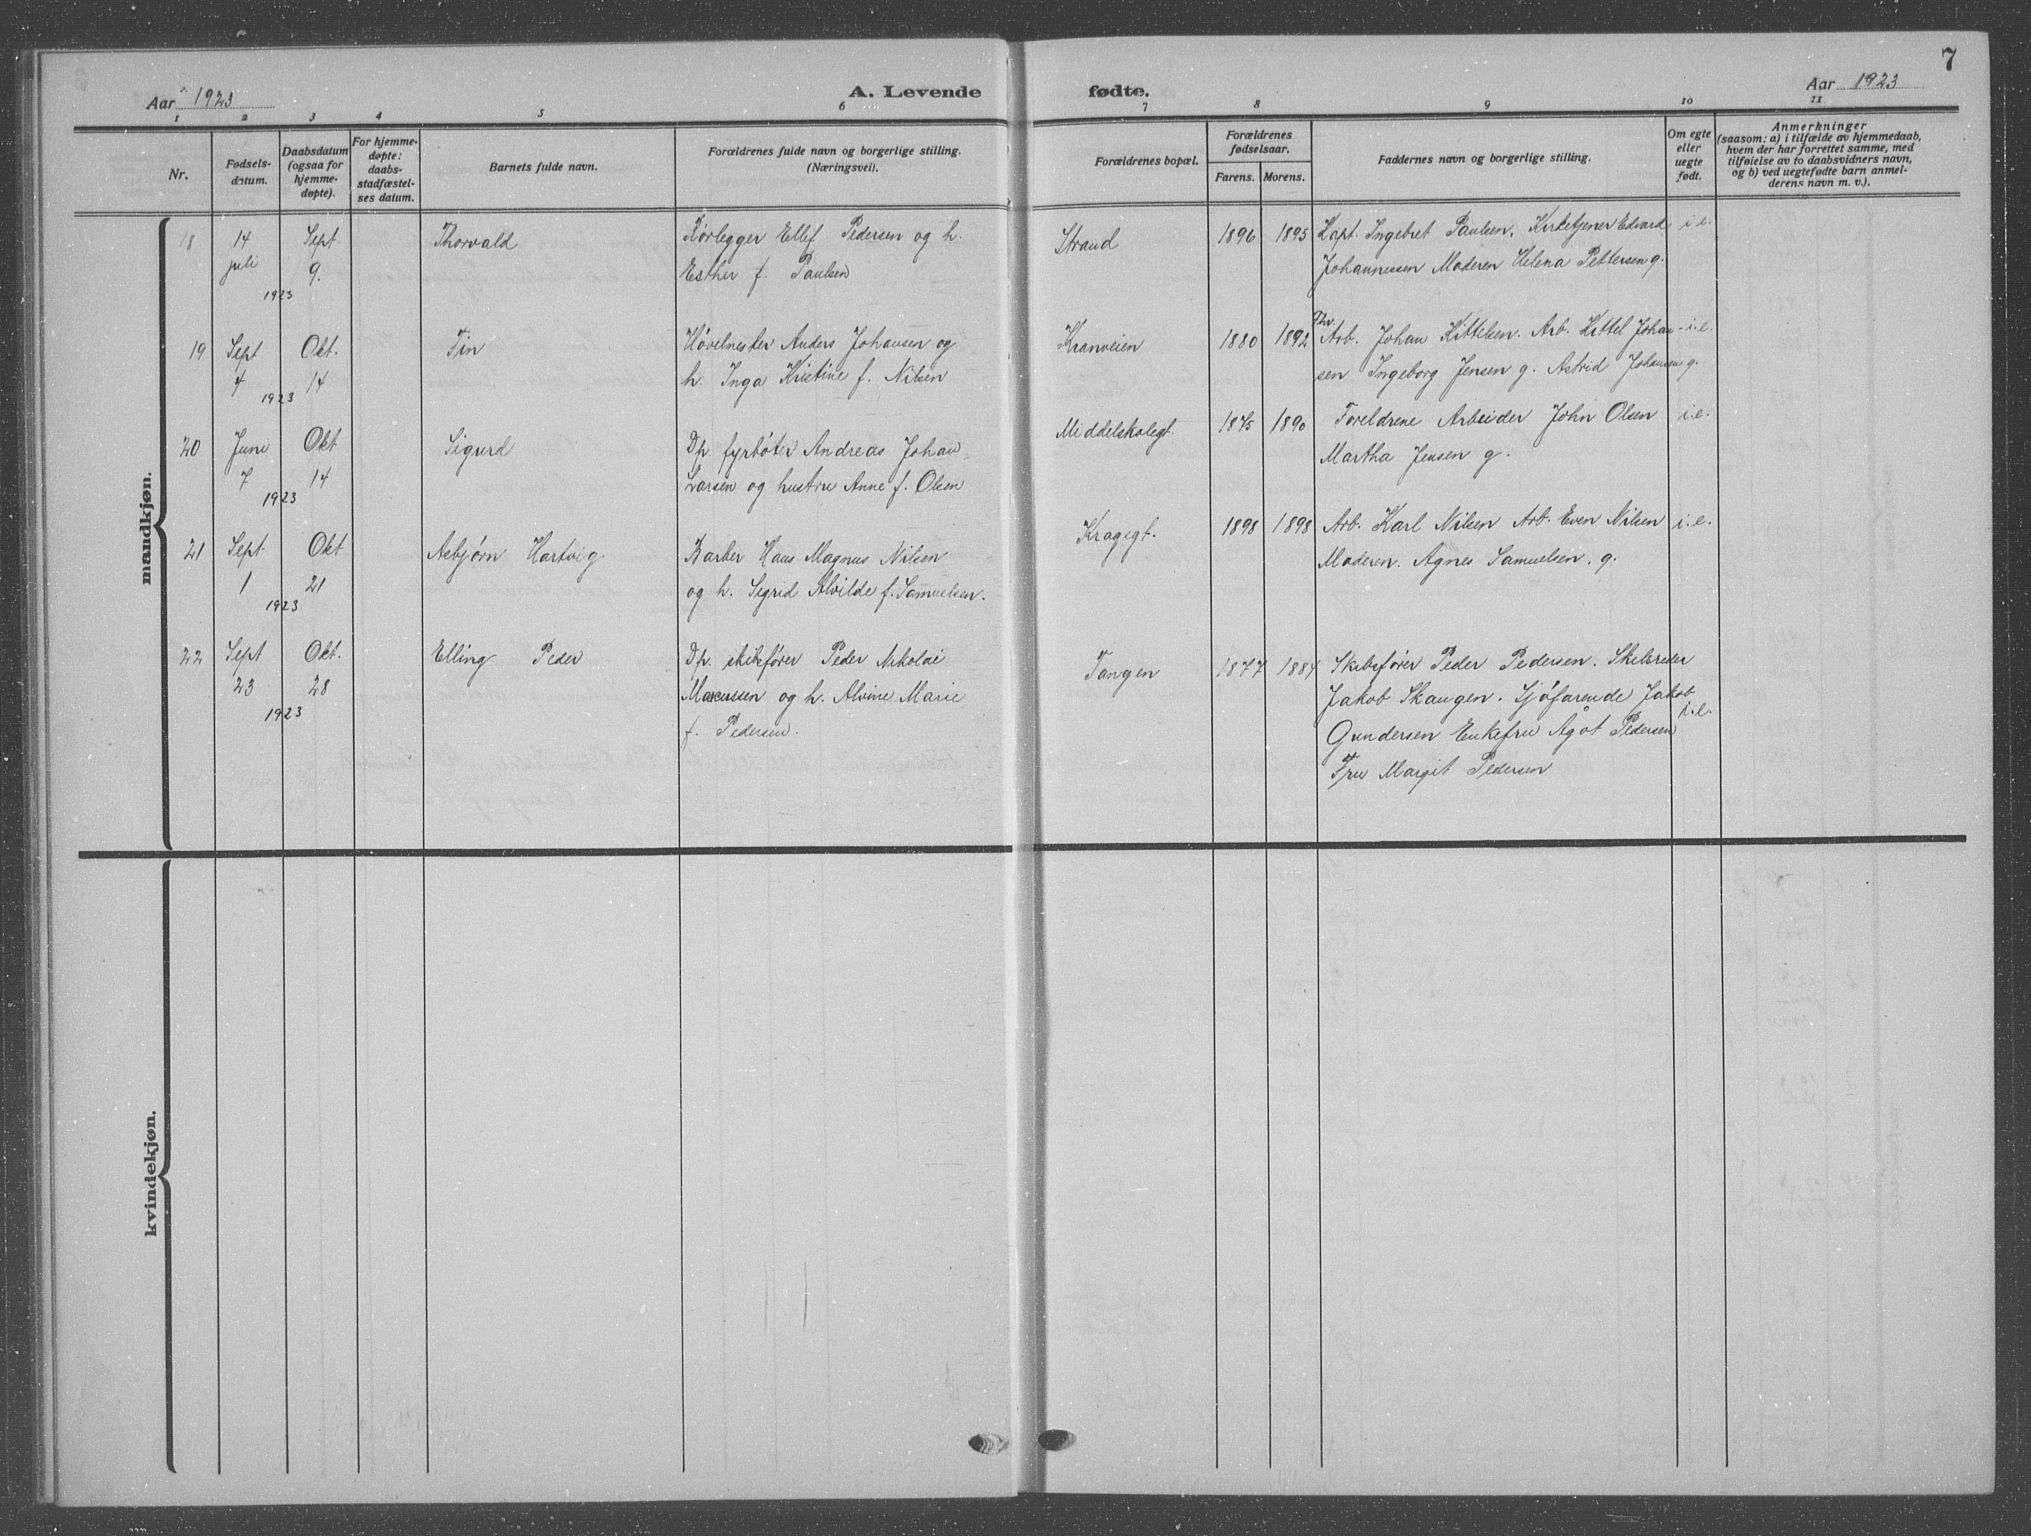 7
Aar 1923
A. Levende
fødte.
Aar 1923
1 2 3 4 5 6 7 8 9 10 11
Nr.
Fødsels-
datum.
Daabsdatum
(ogsaa for
hjemme-
døpte).
For hjemme-
døpte:
daabs-
stadfæstel-
ses datum.
Barnets fulde navn.
Forældrenes fulde navn og borgerlige stilling.
(Næringsvei).
Forældrenes bopæl.
Forældrenes
fødselsaar.
Farens. Morens.
Faddernes navn og borgerlige stilling.
Om egte
eller
uegte
født.
Anmerkninger
(saasom: a) i tilfælde av hjemmedaab,
hvem der har forrettet samme, med
tilføielse av to daabsvidners navn,
og b) ved uegtefødte barn anmel-
derens navn m. v.).
mandkjøn.
18 14 Sept. Thorvald Rørlegger Ellef Pedersen og h. Strand 1896 1895 Kapt. Ingebret Paulsen, Kirketjener Edvard i.e.
juli 9. Esther f. Paulsen Johannessen Moderen Helena Pettersen g.
1923
19 Sept Okt. Fin Høvelmester Anders Johansen og Kranveien 1880 1892 Arb. Johan Kittelsen. Arb. Kittel Johan- i.e.
4 14 h. Inga Kristine f. Nilsen sen Ingeborg Jensen g. Astrid Johansen g.
1923
20 June Okt Sigurd Dp. fyrbøter Andreas Johan Middelskolegt. 1875 1890 Foreldrene Arbeider John Olsen i.e.
7 14 Larsen og hustru Anne f. Olsen Martha Jensen g.
1923
21 Sept Okt Asbjørn Hartvig Barber Hans Magnus Nilsen Kragegt. 1898 1898 Arb. Karl Nilsen Arb. Even Nilsen i.e.
1 21 og h. Sigrid Alvilde f. Samuelsen. Moderen. Agnes Samuelsen. g.
1923
22 Sept Okt. Elling Peder Dp. skibsfører Peder Nikolai Tangen 1877 1884 Skibsfører Peder Pedersen. Skibsreder
23 28 Marcussen og h. Alvine Marie Jakob Skaugen. Sjøfarende Jakob i.e.
1923 f. Pedersen. Gundersen Enkefru Agot Pedersen
Fru Margit Pedersen
kvindekjøn.